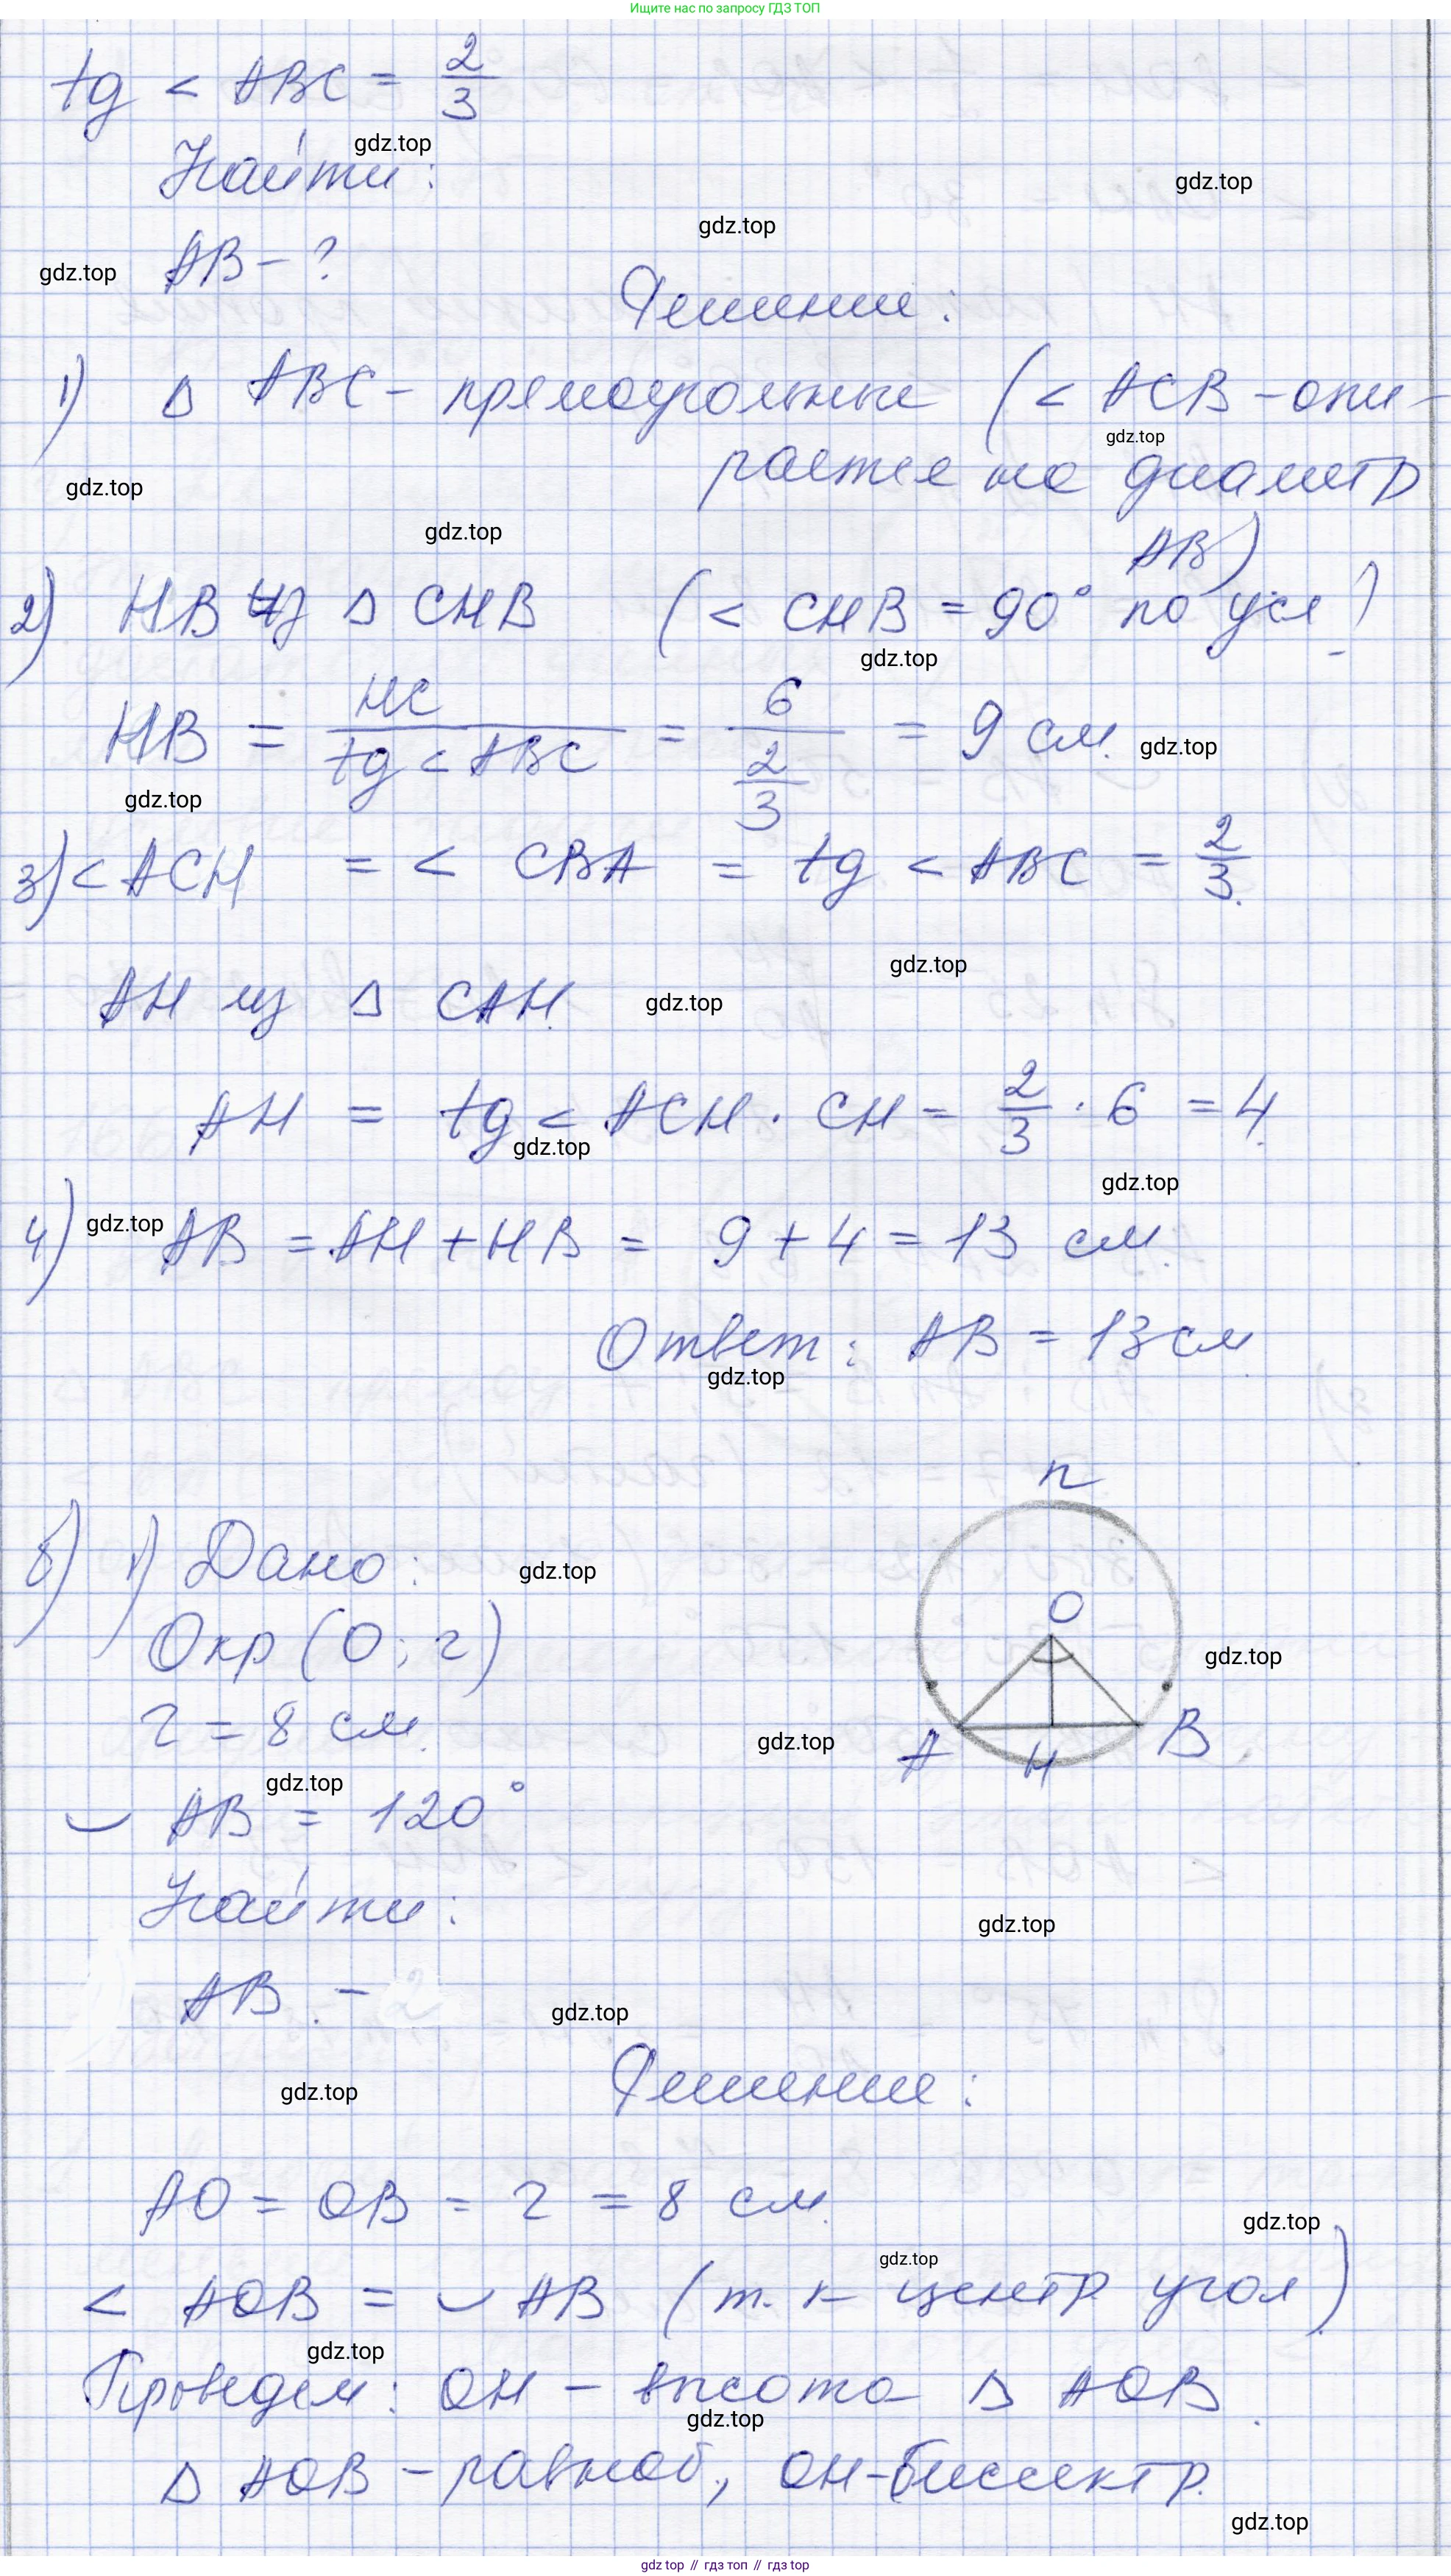 Ищите нас по запросу ГДЗ ТОП
tg < ABC = 2/3
gdz.top
Найти:
gdz.top
gdz.top
AB - ?
gdz.top
Решение:
1) Δ ABC - прямоугольные (< ACB - опи-
gdz.top
рается на диаметр
gdz.top
gdz.top
AB)
2) HB из Δ CHB (< CHB = 90° по усл.)
gdz.top
HB = HC / tg < ABC = 6 / (2/3) = 9 см.
gdz.top
gdz.top
3) < ACH = < CBA = tg < ABC = 2/3.
gdz.top
AH из Δ CAH.
gdz.top
AH = tg < ACH · CH = 2/3 · 6 = 4.
gdz.top
gdz.top
4) AB = AH + HB = 9 + 4 = 13 см.
gdz.top
Ответ: AB = 13 см
gdz.top
n
1) Дано:
gdz.top
O
Окр (O; r)
gdz.top
r = 8 см.
gdz.top
A H B
gdz.top
◡ AB = 120°
Найти:
gdz.top
AB -
gdz.top
Решение:
gdz.top
AO = OB = r = 8 см.
gdz.top
gdz.top
< AOB = ◡ AB (т. к центр угол)
gdz.top
Проведем: OH - высота Δ AOB.
gdz.top
Δ AOB - равноб, OH - биссектр.
gdz.top
gdz top // гдз топ // gdz top